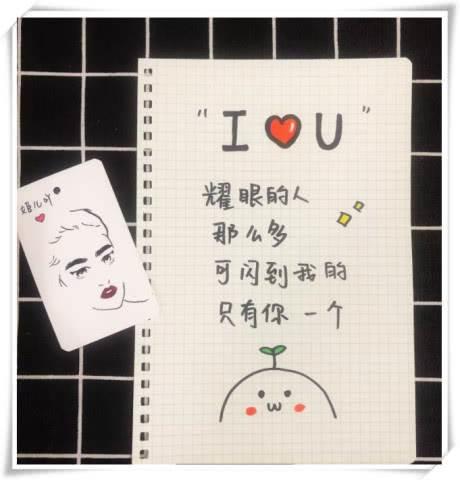 "I ❤ U"
耀眼的人
那么多
可闪到我的
只有你一个